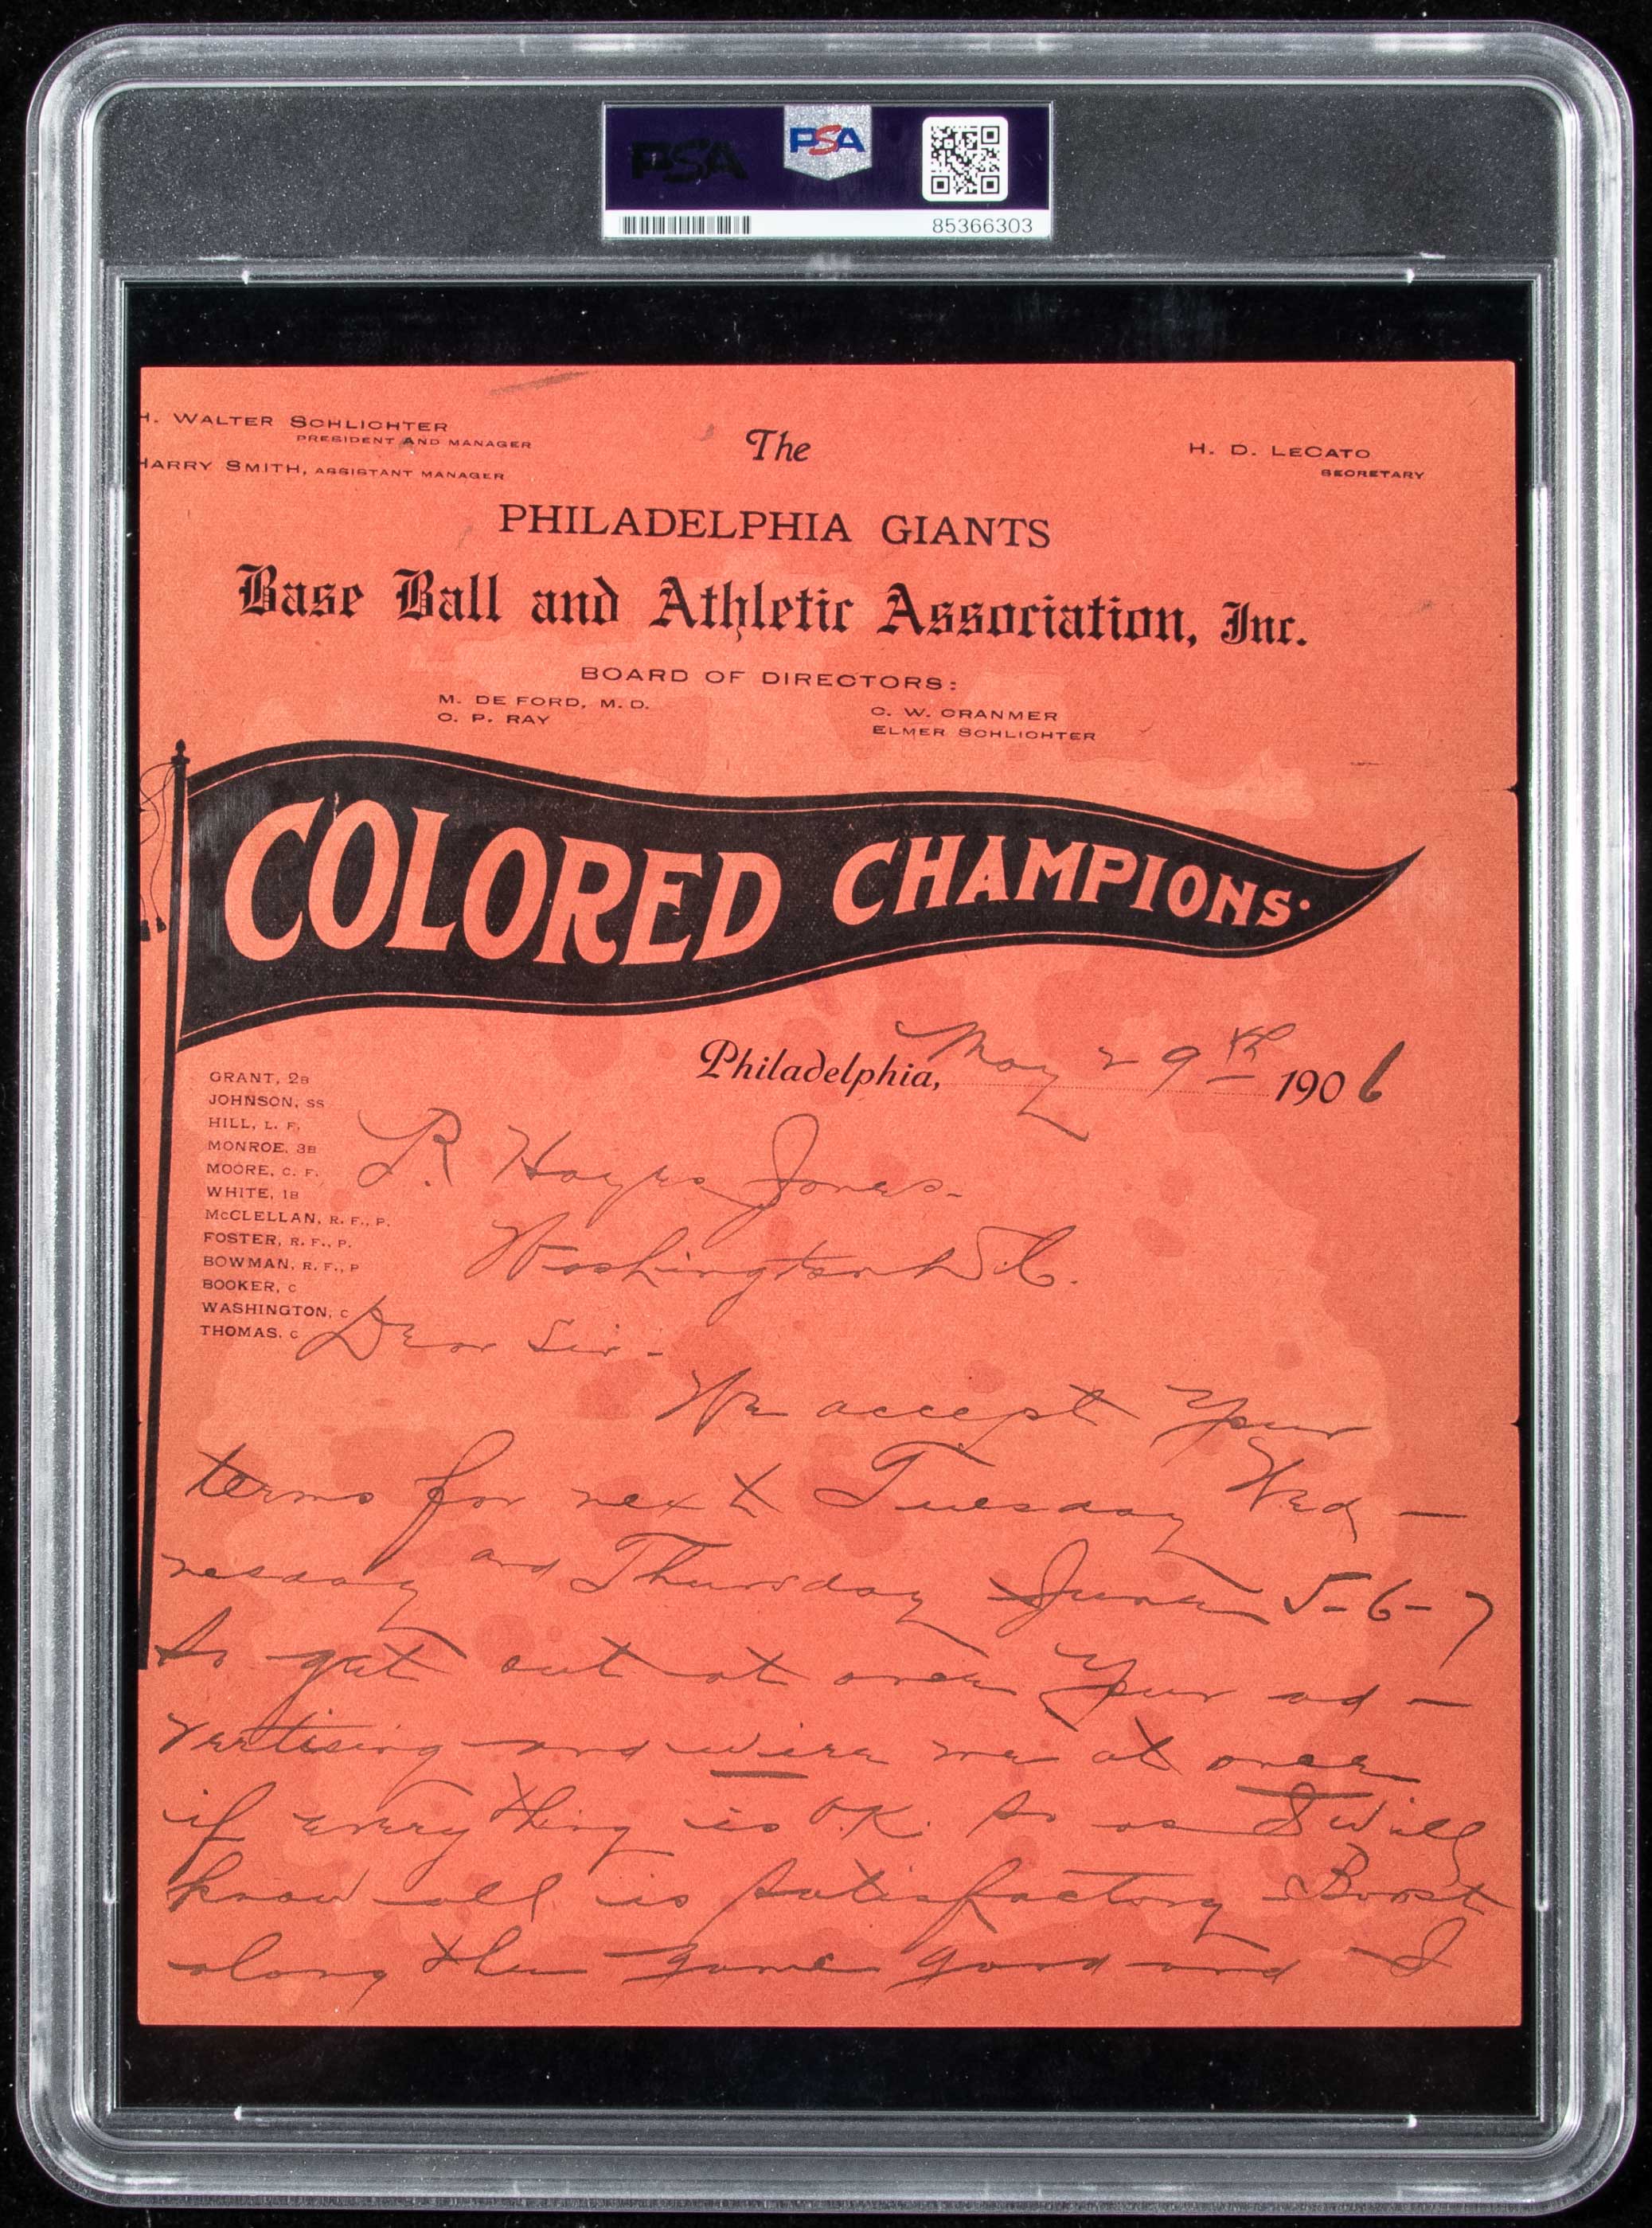 PSA
PSA
85366303
H. WALTER SCHLICHTER
PRESIDENT AND MANAGER
HARRY SMITH, ASSISTANT MANAGER
The
H. D. LECATO
SECRETARY
PHILADELPHIA GIANTS
Base Ball and Athletic Association, Inc.
BOARD OF DIRECTORS:
M. DE FORD, M.D.
C. P. RAY
C. W. CRANMER
ELMER SCHLICHTER
COLORED CHAMPIONS.
Philadelphia, May 29th 1906
GRANT, 2B
JOHNSON, SS
HILL, L. F.
MONROE, 3B
MOORE, C. F.
WHITE, 1B
McCLELLAN, R. F., P.
FOSTER, R. F., P.
BOWMAN, R. F., P
BOOKER, C
WASHINGTON, C
THOMAS, C
R. Hayes Jones.
Washington D.C.
Dear Sir:-
We accept your
terms for next Tuesday Wed-
nesday and Thursday June 5-6-7
So get out at once your ad-
vertising and wire me at once
if every thing is O.K. So as I will
know all is satisfactory Boost
along the game good and I